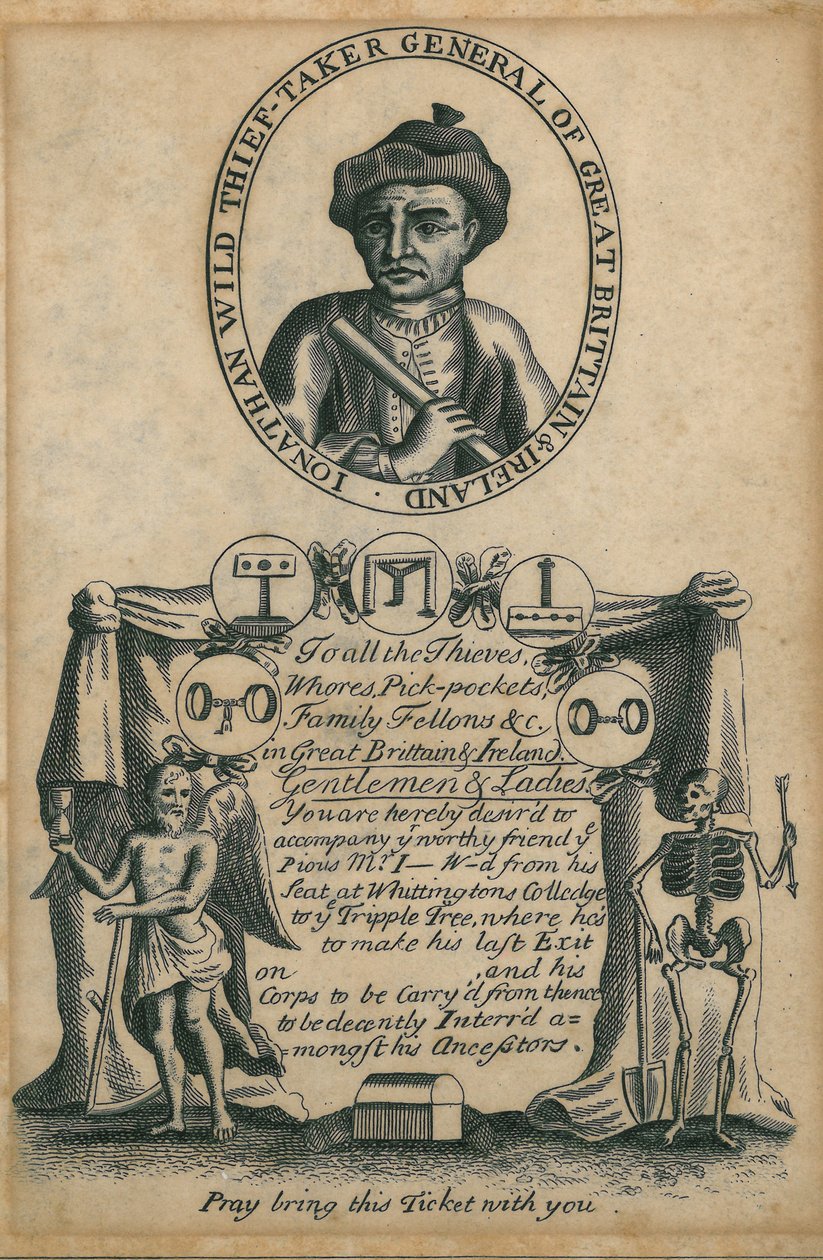 IONATHAN WILD THIEF-TAKER GENERAL OF GREAT BRITTAIN & IRELAND ·
To all the Thieves,
Whores, Pick-pockets,
Family Fellons &c.
in Great Brittain & Ireland.
Gentlemen & Ladies
You are hereby desir'd to
accompany yr worthy friend ye
Pious Mr. I— W-d from his
Seat at Whittingtons Colledge
to ye Tripple Tree, where he's
to make his laſt Exit
on , and his
Corps to be Carry'd from thence
to be decently Interr'd a=
=mongſt his Anceſtors.
Pray bring this Ticket with you .